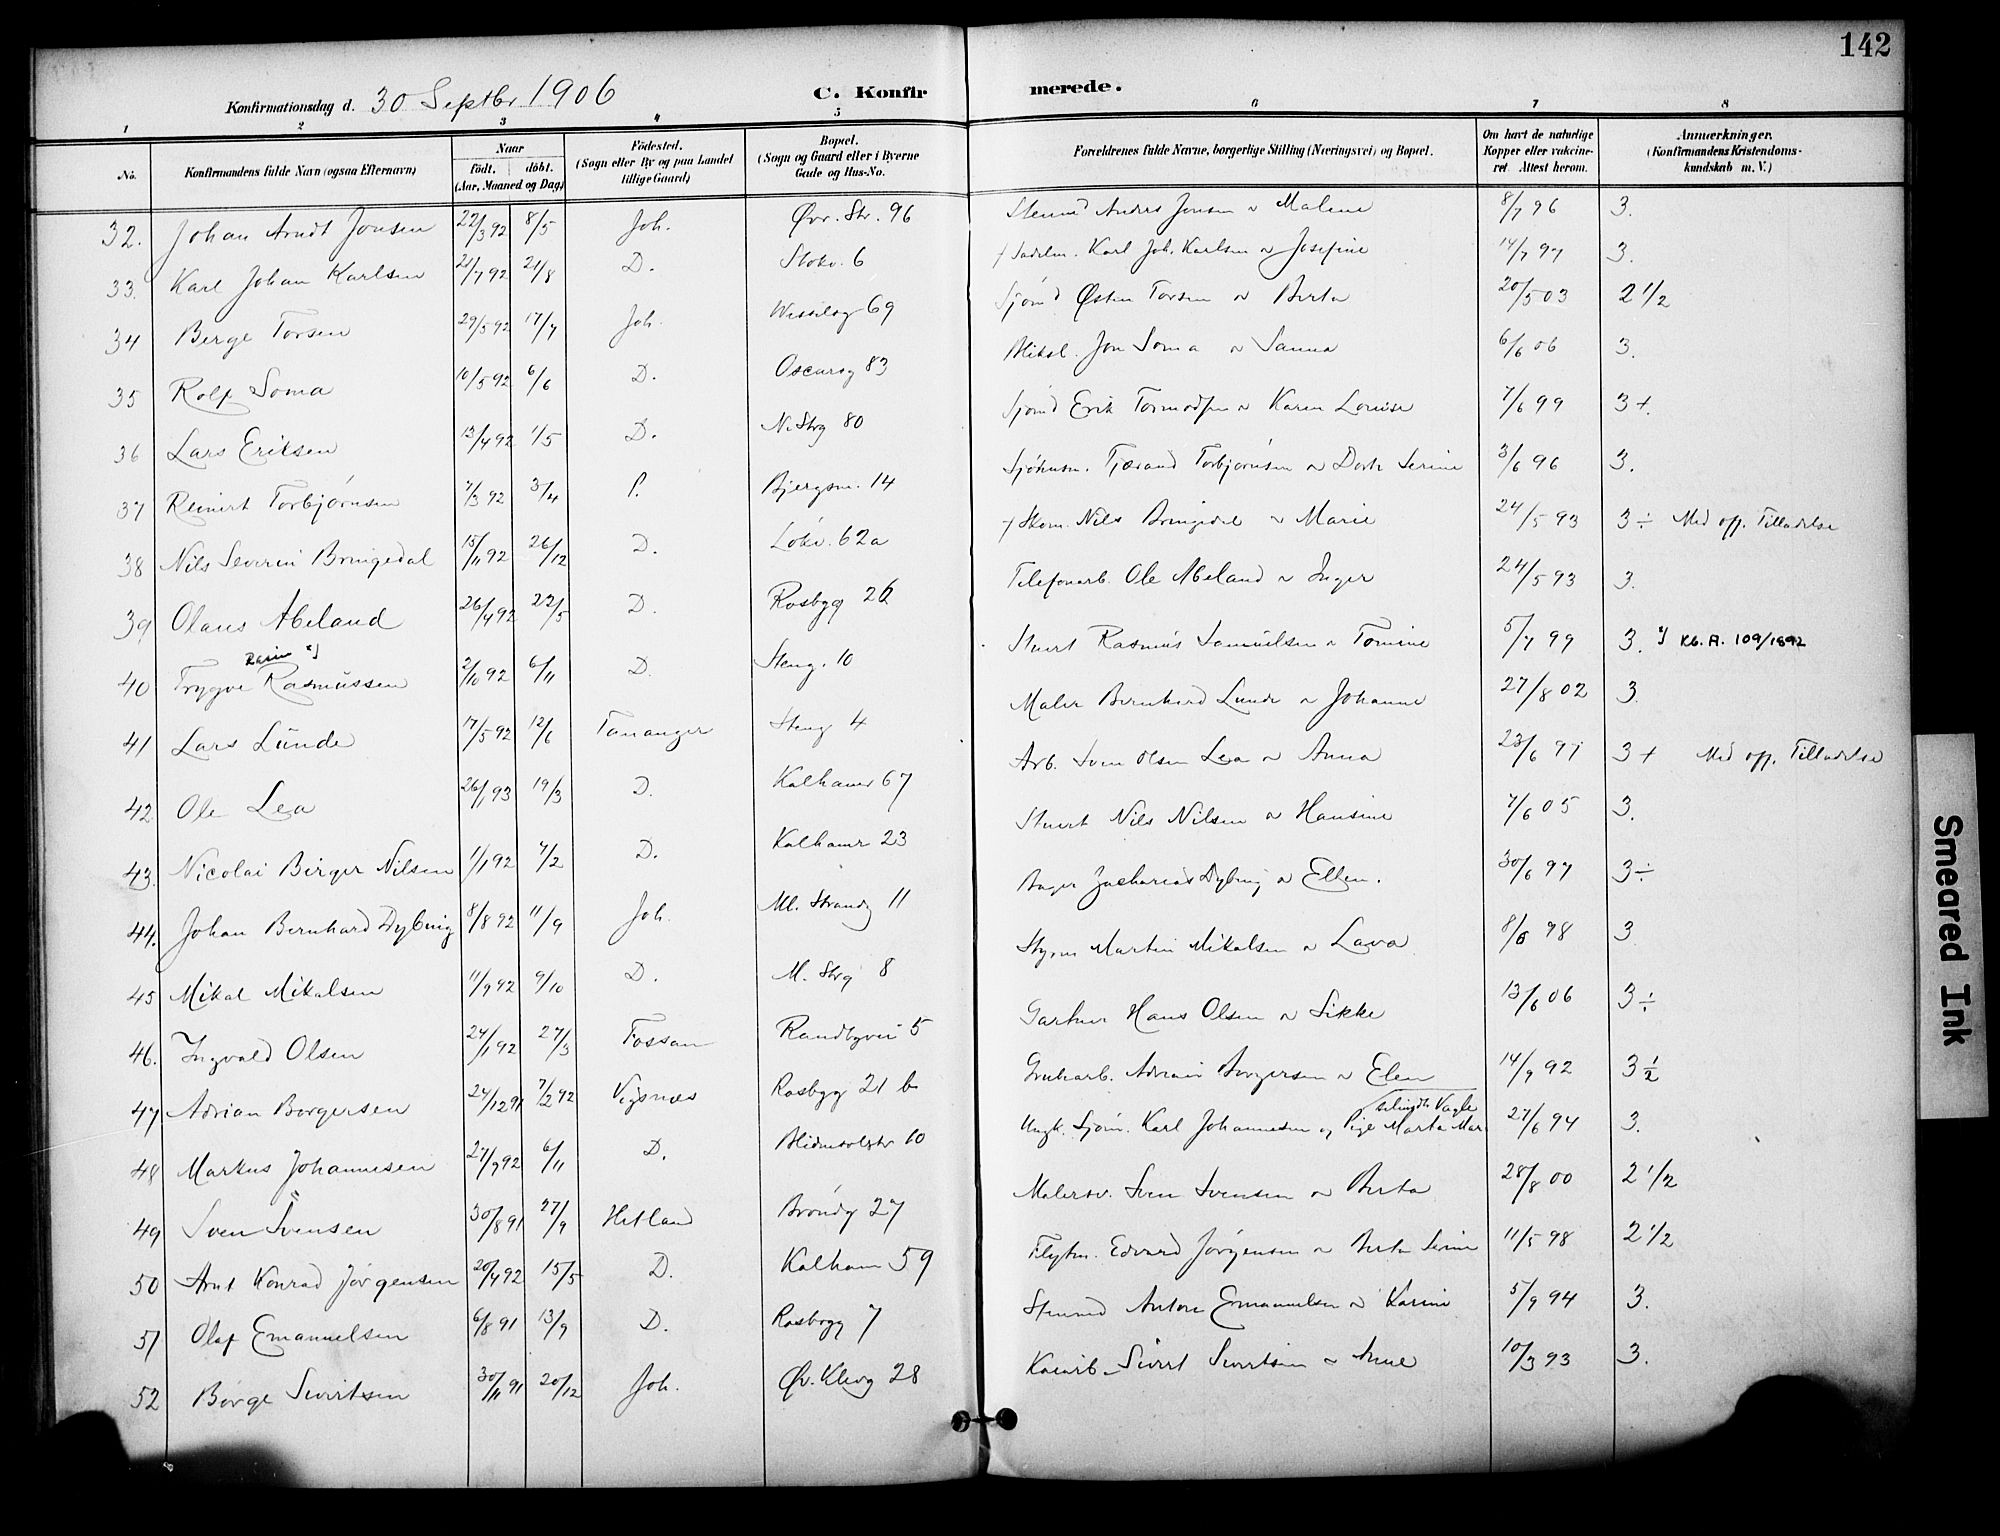 142
Konfirmationsdag d. 30 Septbr 1906 C. Konfirmerede.
1 2 3 4 5 6 7 8
No. Konfirmandens fulde Navn (ogsaa Efternavn) Naar født. døbt. (Aar, Maaned og Dag) Fødested. (Sogn eller By og paa Landet tillige Gaard) Bopæl. (Sogn og Gaard eller i Byerne Gade og Hus-No. Forældrenes fulde Navne, borgerlige Stilling (Næringsvei) og Bopæl. Om havt de naturlige Kopper eller vakcineret Attest herom. Anmærkninger. (Konfirmandens Kristendomskundskab m. V.)
32. Johan Arndt Jonsen 22/3 92 8/5 Joh. Øvr. Str. 96 Stenmd Anders Jonsen & Malene 8/7 96 3.
33. Karl Johan Karlsen 21/7 92 21/8 D. Stokv. 6 † Sadelm. Karl Joh. Karlsen & Josefine 14/7 97 3.
34 Berge Torsen 29/5 92 17/7 Joh. Wesselsg 69 Sjømd Østen Torsen & Berta 20/5 03 2 1/2
35 Rolf Soma 10/5 92 6/6 D. Oscarsg 83 Jon Soma & Sanna 6/6 06 3.
36 Lars Eriksen 13/4 92 1/5 D. N. Strg 80 Sjømd Erik Tormodsen & Karen Louise 7/6 99 3+.
37 Reinert Torbjørnsen 7/3 92 3/4 P. Bjergsm. 14 Tjerand Torbjørnsen & Dorte Serine 3/6 96 3.
38 Nils Severin Bringedal 15/11 92 26/12 D. Løkv. 62a † Skom. Nils Bringedal & Marie 24/5 93 3÷ Med op. Tilladelse
39 Olaus Abeland 26/4 92 22/5 D. Rosbyg 26 Telefonarb. Ole Abeland & Inger 24/5 93 3.
40 Trygve Rasmussen 2/10 92 6/11 D. Steng. 10 Stuert Rasmus Samuelsen & Tomine 5/7 99 3. *) Kb. A. 109/1892
41 Lars Lunde 17/5 92 12/6 Tananger Steng 4 Maler Bernhard Lunde & Johanne 27/8 02 3
42 Ole Lea 26/1 93 19/3 D. Kalhamr 67 Arb. Sven Olsen Lea & Anna 23/6 97 3+ Med op. Tilladelse
43. Nicolai Birger Nilsen 1/1 92 7/2 D. Kalhamr 23 Stuert Nils Nilsen & Hansine 7/6 05 3.
44. Johan Bernhard Dybing 8/8 92 11/9 Joh. Ml. Strandg 11 Bager Zacharias Dybing & Ellen. 30/6 97 3÷
45 Mikal Mikalsen 11/9 92 9/10 D. M. Strg 8 Styrm Martin Mikalsen & Lava 8/6 98 3
46. Ingvald Olsen 24/1 92 27/3 Fossan Randbgvei 5 Gartner Hans Olsen & Sikke 13/6 06 3÷
47 Adrian Borgersen 24/12 91 7/2 92 Vigsnæs Rosbyg 21 b Grubearb. Adrian Borgersen & Elen 14/9 92 3 1/2
48 Markus Johannesen 27/9 92 6/11 D. 10 Ungk. Sjøm. Karl Johannesen og Pige Marta Mar. Vagle 27/6 94 3.
49 Sven Svensen 30/8 91 27/9 Hetland Brøndg 27 Malersv. Sven Svensen & Berta 28/8 00 2 1/2
50 Arnt Konrad Jørgensen 20/4 92 15/5 D. Kalham 59 Edvard Jørgensen & Berta Serine 11/5 98 2 1/2
51 Olaf Emanuelsen 6/8 91 13/9 D. Rosbrgg 7 Stenmd Anton Emanuelsen & Karine 5/9 94 3.
52 Børge Sivertsen 30/11 91 20/12 Joh. Øv. Klevg 28 Sivert Sivertsen & Anne 10/3 93 3.
Smeared Ink